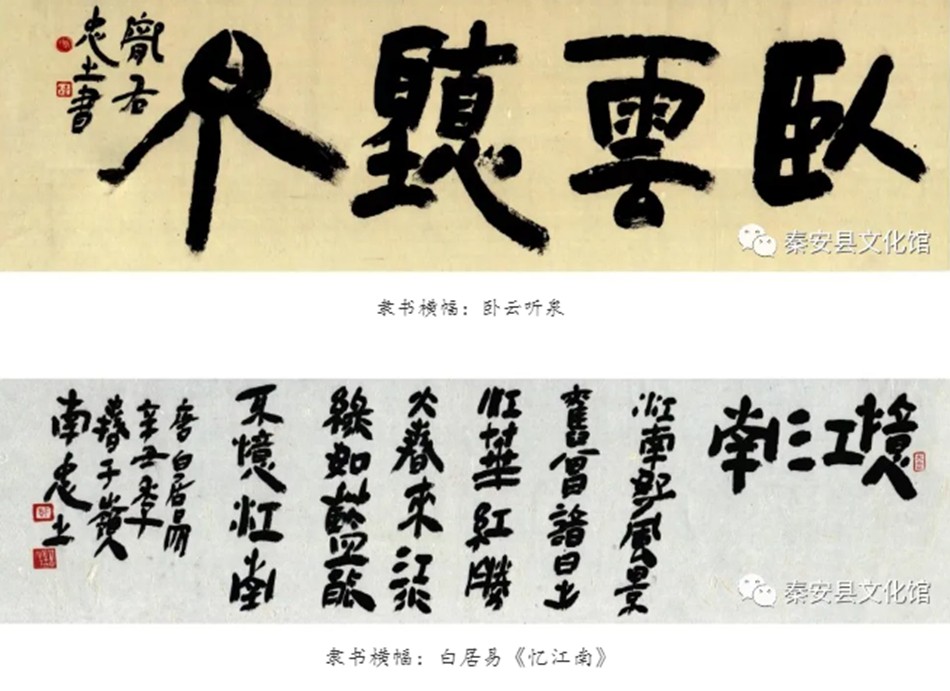 臥雲聽泉
右
忠土書
秦安县文化馆
隶书横幅：卧云听泉
憶江南
江南好風景
舊曾諳日出
江華紅勝
火春來江水
綠如藍能
不憶江南
唐白居易
辛丑季
春于嶺
南忠土
秦安县文化馆
隶书横幅：白居易《忆江南》